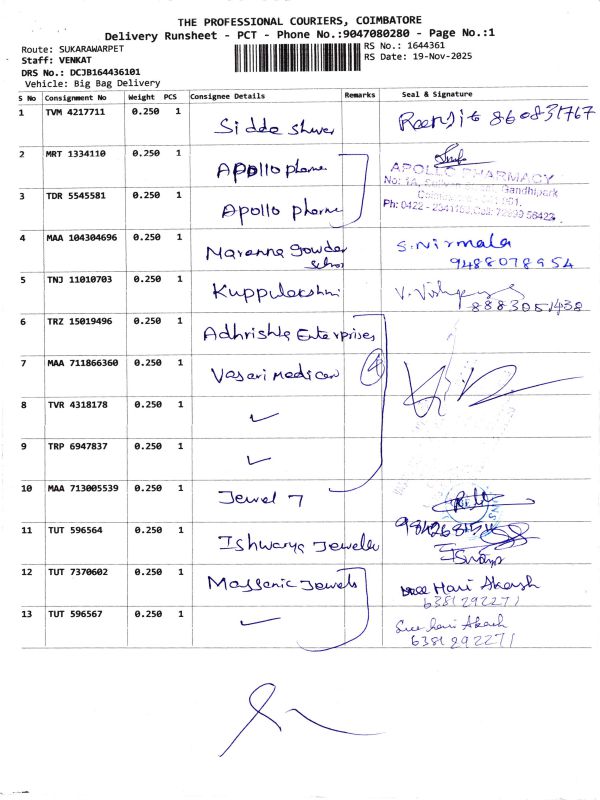 THE PROFESSIONAL COURIERS, COIMBATORE
Delivery Runsheet - PCT - Phone No.:9047080280 - Page No.:1
Route: SUKARAWARPET
RS No.: 1644361
Staff: VENKAT
RS Date: 19-Nov-2025
DRS No.: DCJB164436101
Vehicle: Big Bag Delivery
S No Consignment No Weight PCS Consignee Details Remarks Seal & Signature
1 TVM 4217711 0.250 1 860831767
2 MRT 1334110 0.250 1 Apollo
APOLLO PHARMACY
3 TDR 5545581 0.250 1 Apollo
Gandhipark
Ph: 0422 -
4 MAA 104304696 0.250 1 Maranna Gowder S. Nirmala
9488078954
5 TNJ 11010703 0.250 1 Kuppulakshmi
8883051438
6 TRZ 15019496 0.250 1 Enterprises
7 MAA 711866360 0.250 1 Vasari 4
8 TVR 4318178 0.250 1 ✓
9 TRP 6947837 0.250 1 ✓
10 MAA 713005539 0.250 1 Jewel 7
11 TUT 596564 0.250 1 Ishwarya
12 TUT 7370602 0.250 1 Jewels Hari Akash
6381292271
13 TUT 596567 0.250 1 ✓ Hari Akash
6381292271